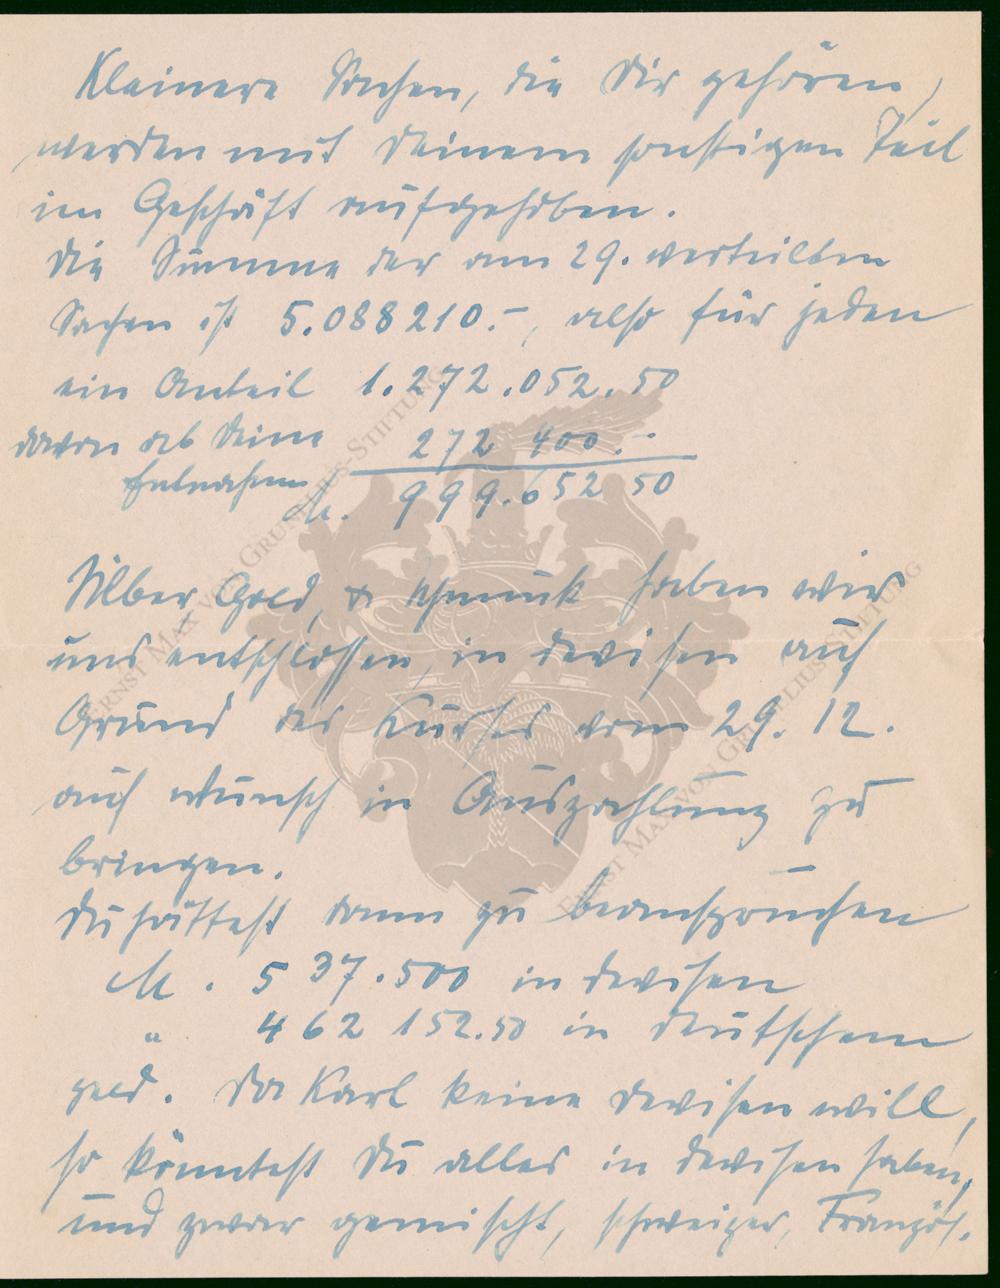 Kleinere Sachen, die Dir gehören,
werden mit Deinem sonstigen Teil
im Geschäft aufgehoben.
Die Summe der am 29. verteilten
Sachen ist 5.088210.-, also für jeden
ein Anteil 1.272.052.50
davon ab Deine 272 400.-
Entnahme M. 999.652 50
Silber Gold, & Schmuck haben wir
uns entschlossen, in Devisen auf
Grund des Kurses vom 29. 12.
auf Wunsch in Auszahlung zu
bringen.
Du hättest dann zu beanspruchen
M. 537.500 in Devisen
" 462 152.50 in Deutschem
Geld. Da Karl keine Devisen will,
so könntest Du alles in Devisen haben,
und zwar gemischt, schweizer, Französ.
ERNST MAX VON GRUNELIUS-STIFTUNG
ERNST MAX VON GRUNELIUS-STIFTUNG